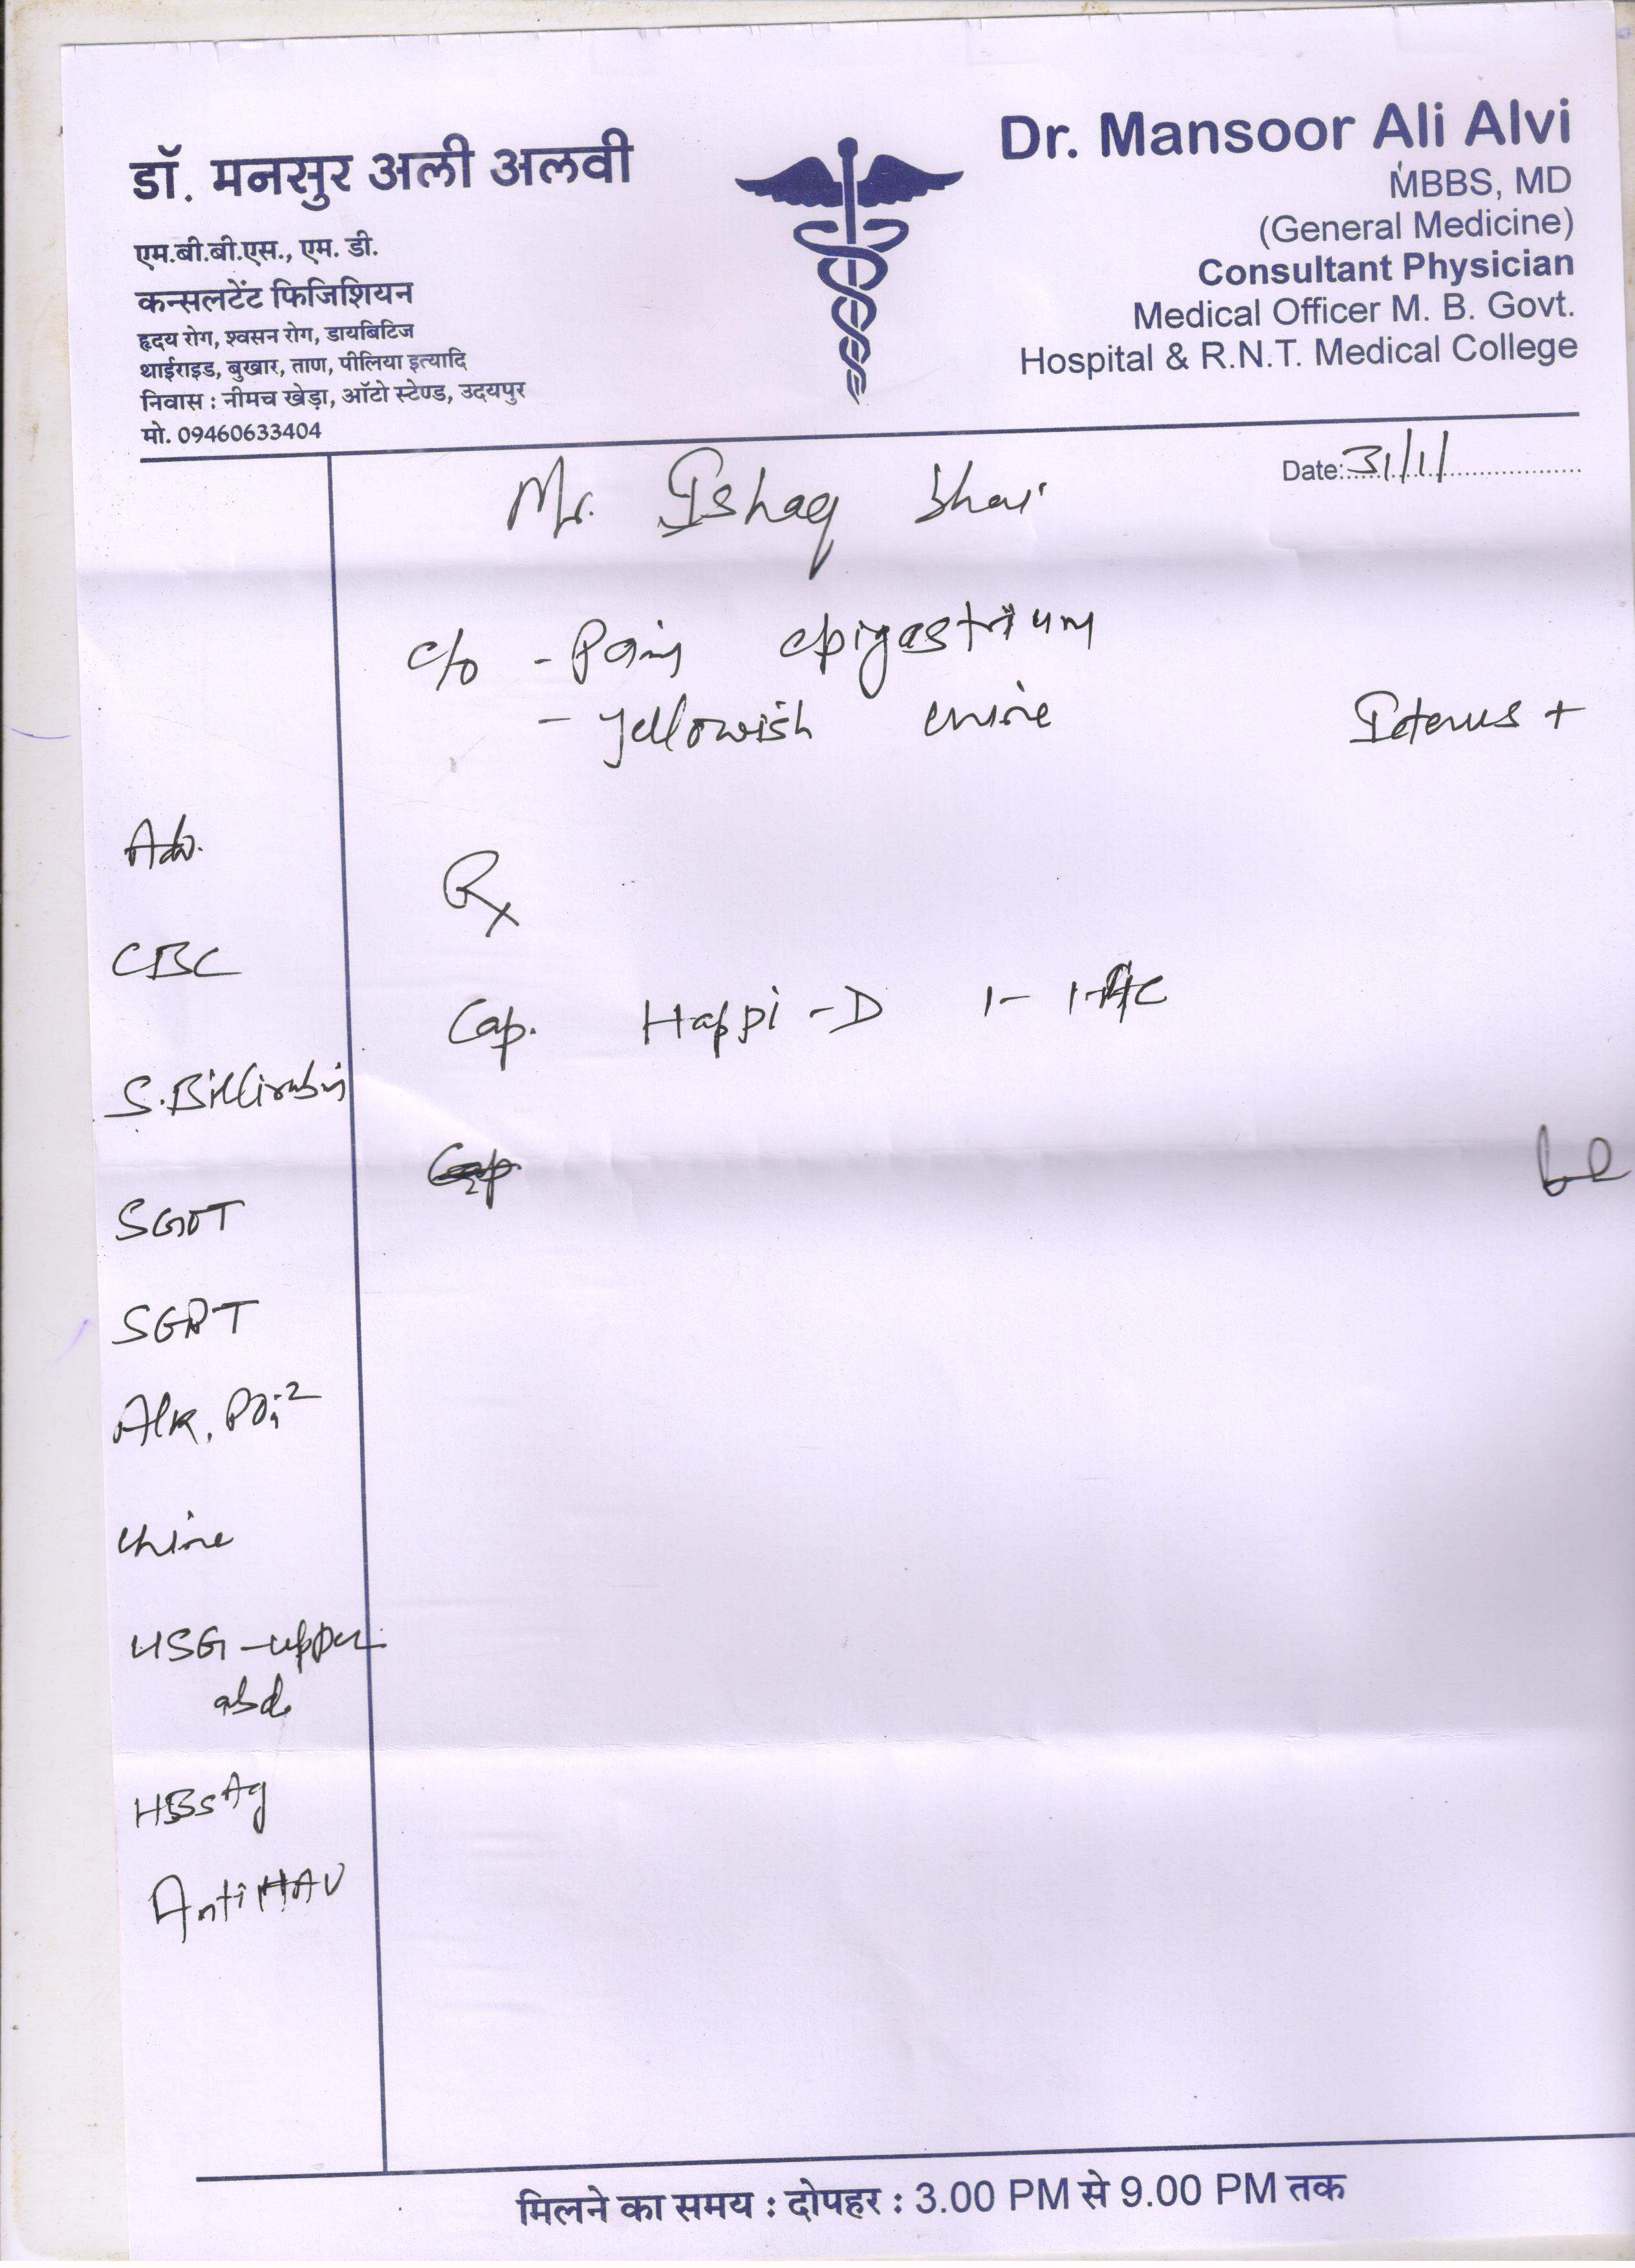 डॉ. मनसुर अली अलवी
एम.बी.बी.एस., एम. डी.
कन्सलटेंट फिजिशियन
हृदय रोग, श्वसन रोग, डायबिटिज
थाईराइड, बुखार, ताण, पीलिया इत्यादि
निवास : नीमच खेड़ा, ऑटो स्टेण्ड, उदयपुर
मो. 09460633404
Dr. Mansoor Ali Alvi
MBBS, MD
(General Medicine)
Consultant Physician
Medical Officer M. B. Govt.
Hospital & R.N.T. Medical College
Date: 31/1/
Mr. Ishaq bhai
c/o - Pain epigastrium
- yellowish urine
Icterus +
Adv.
CBC
S. Billirubin
SGOT
SGPT
Alk. PO4-2
urine
USG - upper
abd.
HBsAg
Anti HAV
Rx
Cap. Happi - D 1- 1-
मिलने का समय : दोपहर : 3.00 PM से 9.00 PM तक